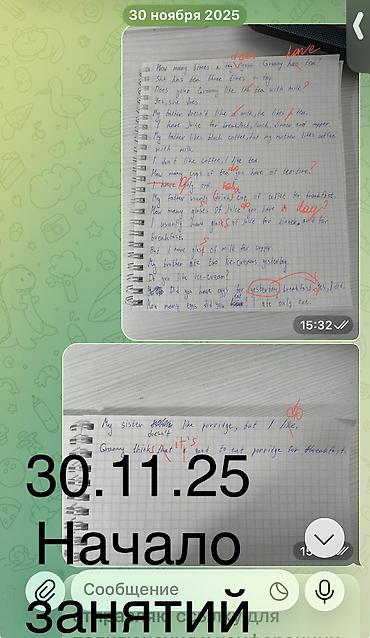 30 ноября 2025
does have
How many times a day your Granny has tea?
She has tea three times a day.
Does your Granny like tea with milk?
Yes, she does.
My father doesn't like milk, she likes tea.
I have juice for breakfast, lunch, dinner and supper.
My father likes black coffee, but my mother likes coffee
with milk.
I don't like coffee, I like tea.
do
How many cups of tea you have at tea-time?
I have only one.
My father usually cup of coffee for breakfast.
do
How many glases of juice you have a day?
I usually have glass of juice for dinner and for
breakfast.
But I have glass of milk for supper.
My brother ate two ice-creams yesterday.
Do you like ice-cream?
Did you have eggs for yesterday breakfast? Yes, I did.
How many eggs did you I ate only one.
15:32
do
My sister doesn't like porridge, but I like.
it's
Granny thinks that good to eat porridge for breakfast.
30.11.25
Начало
занятий
Сообщение